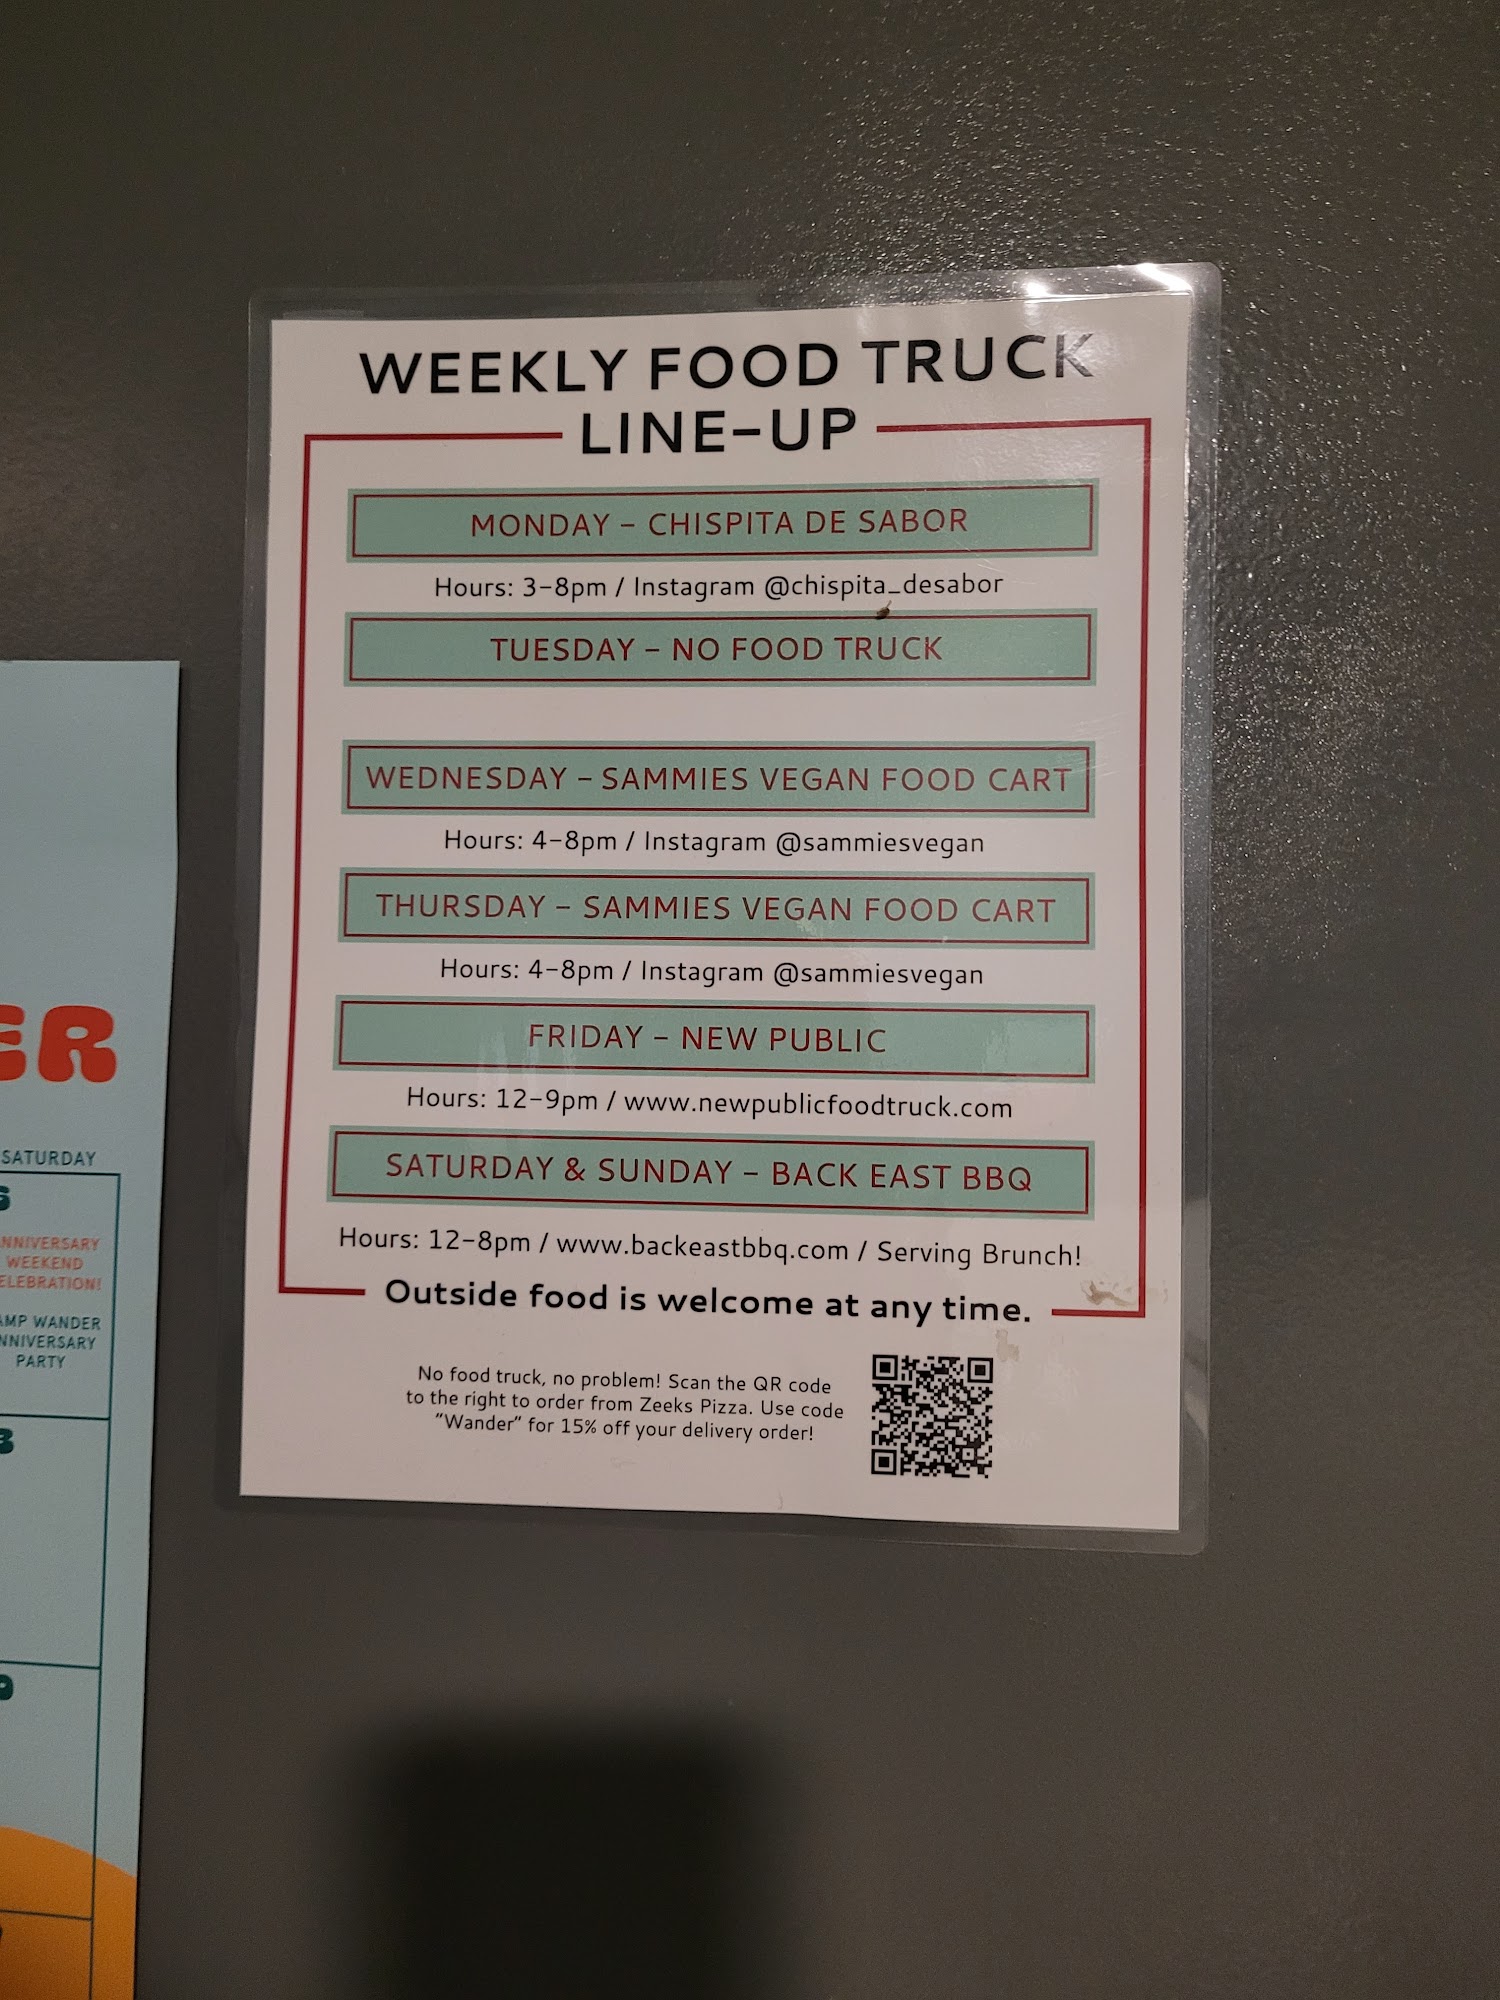 WEEKLY FOOD TRUCK
LINE-UP
MONDAY - CHISPITA DE SABOR
Hours: 3-8pm / Instagram @chispita_desabor
TUESDAY - NO FOOD TRUCK
WEDNESDAY - SAMMIES VEGAN FOOD CART
Hours: 4-8pm / Instagram @sammiesvegan
THURSDAY - SAMMIES VEGAN FOOD CART
Hours: 4-8pm / Instagram @sammiesvegan
FRIDAY - NEW PUBLIC
Hours: 12-9pm / www.newpublicfoodtruck.com
SATURDAY & SUNDAY - BACK EAST BBQ
Hours: 12-8pm / www.backeastbbq.com / Serving Brunch!
Outside food is welcome at any time.
No food truck, no problem! Scan the QR code
to the right to order from Zeeks Pizza. Use code
"Wander" for 15% off your delivery order!
ER
SATURDAY
NNIVERSARY
WEEKEND
ELEBRATION!
AMP WANDER
NNIVERSARY
PARTY